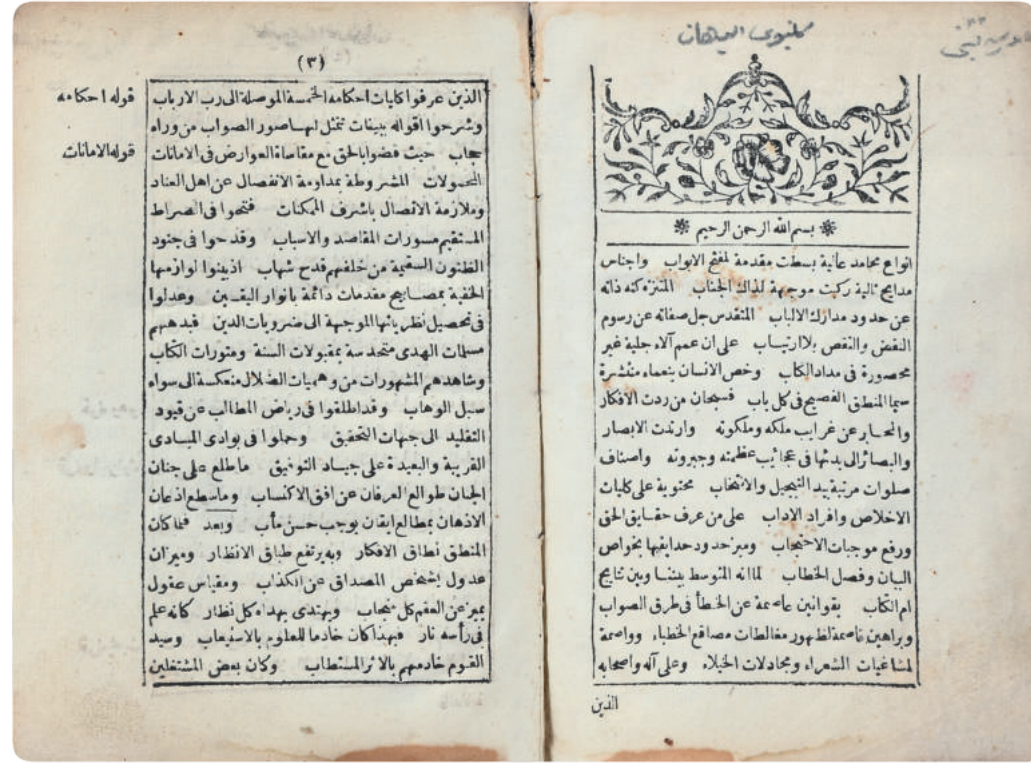 كلنبوى البرهان
بسم الله الرحمن الرحيم
انواع محامد عالية بسطت مقدمة لمفتح الابواب واجناس
مدايح تالية ركبت موجهة لذلك الجناب المتنزه كنه ذاته
عن حدود مدارك الالباب المتقدس جل صفاته عن رسوم
النقض والنقص بلا ارتياب على ان عمم آلاء جلية غير
محصورة فى مداد الكتاب وخص الانسان بنعماء منتشرة
سيما المنطق الفصيح فى كل باب فسبحان من ردت الافكار
وانحار عن غرايب ملكه وملكوته وارتدت الابصار
والبصائر الى بدئها فى عجائب عظمته وجبروته واصناف
صلوات مرتبة بيد التبجيل والانتخاب محتوية على كليات
الاخلاص وافراد الاداب على من عرف حقايق الحق
ورفع موجبات الاحتجاب وميز حدود حدايقها بخواص
البيان وفصل الخطاب لما انه المتوسط بيننا وبين نتايج
ام الكتاب بقوانين عاصمة عن الخطأ فى طرق الصواب
وبراهين قاصمة لظهور مغالطات مصاقع الخطباء وواصمة
لمشاغبات الشعراء ومجادلات الخيلاء وعلى آله واصحابه
الذين
(٣)
الذين عرفوا كايات احكامه الخمسة الموصلة الى رب الارباب
وشرحوا اقواله ببينات تتمثل لها صور الصواب من وراء
حجاب حيث قضوا بالحق مع مقاساة العوارض فى الامانات
المحمولات المشروطة بمداومة الانفصال عن اهل العناد
وملازمة الاتصال باشرف الممكنات فتحوا فى الصراط
المستقيم مسورات المقاصد والاسباب وقدحوا فى جنود
الظنون السقيمة من خلفهم قدح شهاب اذ بينوا لوازمها
الخفية بمصابيح مقدمات دائمة بانوار اليقين وعدلوا
فى تحصيل نظرياتها الموجهة الى ضروريات الدين فبدههم
مسلمات الهدى متحدسة بمقبولات السنة ومتورات الكتاب
وشاهدهم المشهورات من وهميات الضلال منعكسة الى سواء
سبل الوهاب وقد اطلقوا فى رياض المطالب عن قيود
التقليد الى جهات التحقيق وحملوا فى بوادى المبادى
القريبة والبعيدة على جياد التوفيق ماطلع على جنان
الجنان طوالع العرفان عن افق الاكتساب وماسطع اذعان
الاذهان بمطالع ايقان يوجب حسن مأب وبعد فلما كان
المنطق نطاق الافكار وبه يرتفع طباق الانظار وميزان
عدول يشخص المصداق عن الكذاب ومقياس عقول
يميز عن العقم كل منجاب ويهتدى بهداه كل نظار كانه علم
فى رأسه نار فبهذا كان خادما للعلوم بالاستيعاب وسيد
القوم خادمهم بالاثر المستطاب وكان بعض المشتغلين
قوله احكامه
قوله الامانات